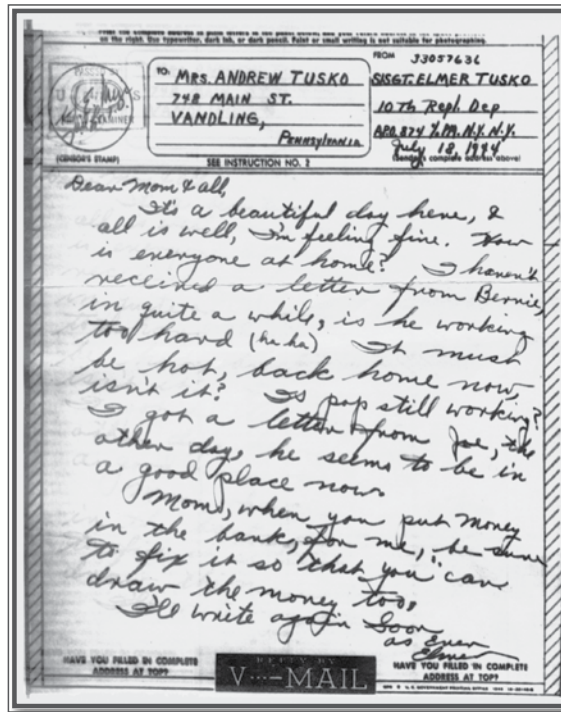 Print the complete address in plain letters in the panel below, and your return address in the space provided
on the right. Use typewriter, dark ink, or dark pencil. Faint or small writing is not suitable for photographing.
FROM
TO:
MRS. ANDREW TUSKO
748 MAIN ST.
VANDLING,
PENNSYLVANIA
33057636
S/SGT. ELMER TUSKO
10TH Repl. Dep
APO 874 % P.M. N.Y. N.Y.
July 18, 1944
(Sender's complete address above)
(CENSOR'S STAMP)
SEE INSTRUCTION NO. 2
Dear Mom & all,
It's a beautiful day here, &
all is well, I'm feeling fine. How
is everyone at home? I haven't
received a letter from Bernie,
in quite a while, is he working
too hard (ha ha) It must
be hot, back home now,
isn't it? Is pop still working?
I got a letter from Joe, the
other day, he seems to be in
a good place now.
Mom, when you put money
in the bank, for me, be sure
to fix it so that you can
draw the money too.
I'll write again soon
as Ever
Elmer
HAVE YOU FILLED IN COMPLETE
ADDRESS AT TOP?
REPLY BY
V···—MAIL
HAVE YOU FILLED IN COMPLETE
ADDRESS AT TOP?